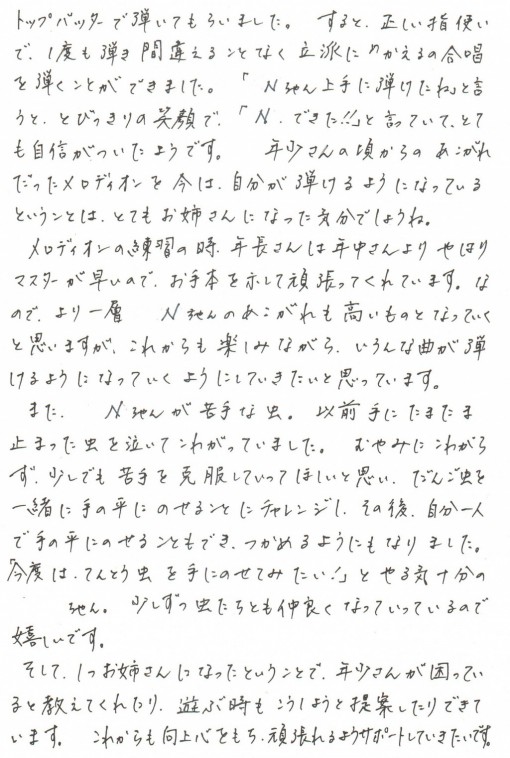 トップバッターで弾いてもらいました。 すると、正しい指使い
で、1度も弾き間違えることなく立派に"かえるの合唱
を弾くことができました。「Nちゃん上手に弾けたね」と言
うと、とびっきりの笑顔で、「N、できた!!」と言っていて、とて
も自信がついたようです。 年少さんの頃からのあこがれ
だったメロディオンを今は、自分が弾けるようになっている
ということは、とてもお姉さんになった気分でしょうね。
メロディオンの練習の時、年長さんは年中さんよりやはり
マスターが早いので、お手本を示して頑張ってくれています。な
ので、より一層 Nちゃんのあこがれも高いものとなっていく
と思いますが、これからも楽しみながら、いろんな曲が弾
けるようになっていくようにしていきたいと思っています。
また、 Nちゃんが苦手な虫。 以前手にたまたま
止まった虫を泣いてこわがっていました。 むやみにこわがら
ず、少しでも苦手を克服していってほしいと思い、だんご虫を
一緒に手の平にのせることにチャレンジし、その後、自分一人
で手の平にのせることもでき、つかめるようにもなりました。
「今度は、てんとう虫を手にのせてみたい!」とやる気十分の
ちゃん。 少しずつ虫たちとも仲良くなっていっているので
嬉しいです。
そして、1つお姉さんになったということで、年少さんが困ってい
ると教えてくれたり、遊ぶ時もこうしようと提案したりできて
います。 これからも向上心をもち、頑張れるようサポートしていきたいです。